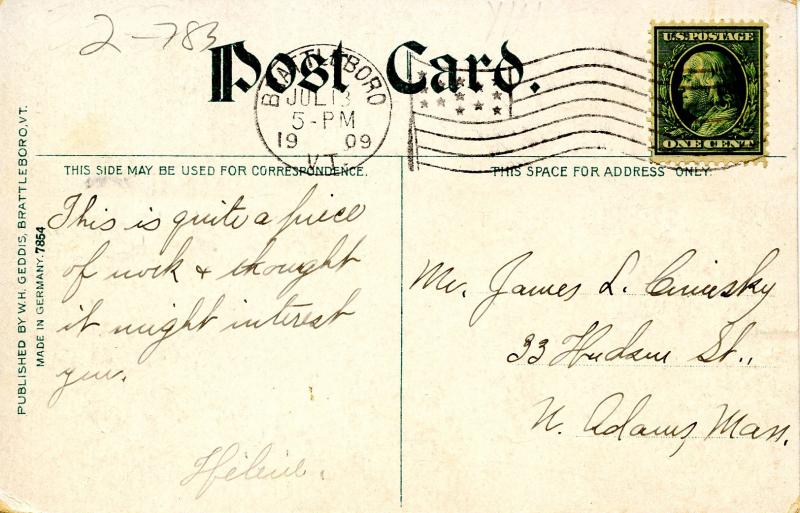 2-783
Post Card.
BRATTLEBORO
JUL 13
5-PM
19 09
VT.
U.S. POSTAGE
ONE CENT
THIS SIDE MAY BE USED FOR CORRESPONDENCE.
THIS SPACE FOR ADDRESS ONLY.
PUBLISHED BY W.H. GEDDIS, BRATTLEBORO, VT.
MADE IN GERMANY. 7854
This is quite a piece
of rock & thought
it might interest
you.
Hélène.
Mr. James L.
33 Hudson St.,
N. Adams, Mass.